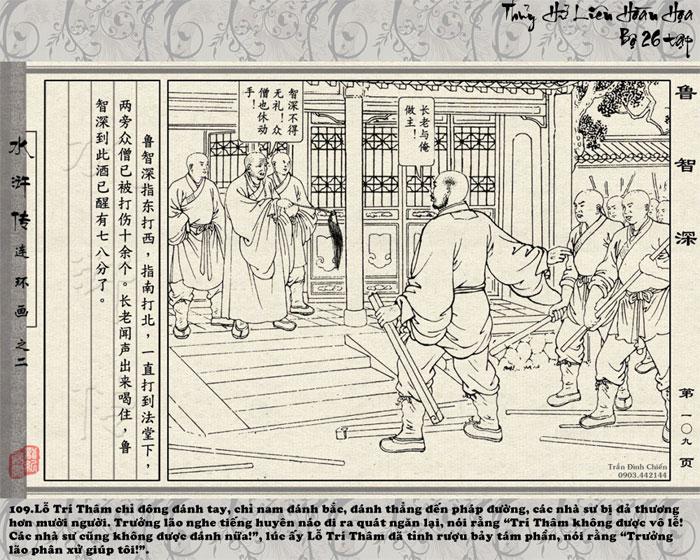 Thủy Hử Liên Hoàn Họa
Bộ 26 tập
鲁智深
第一〇九页
智深不得
无礼！众
僧也休动
手！
长老与俺
做主！
鲁智深指东打西，指南打北，一直打到法堂下，
两旁众僧已被打伤十余个。长老闻声出来喝住，鲁
智深到此酒已醒有七八分了。
水浒传连环画之二
Trần Đình Chiến
0903.442144
109.Lỗ Trí Thâm chỉ đông đánh tay, chỉ nam đánh bắc, đánh thẳng đến pháp đường, các nhà sư bị đả thương
hơn mười người. Trưởng lão nghe tiếng huyên náo đi ra quát ngăn lại, nói rằng “Trí Thâm không được vô lễ!
Các nhà sư cũng không được đánh nữa!”, lúc ấy Lỗ Trí Thâm đã tỉnh rượu bảy tám phần, nói rằng “Trưởng
lão phân xử giúp tôi!”.